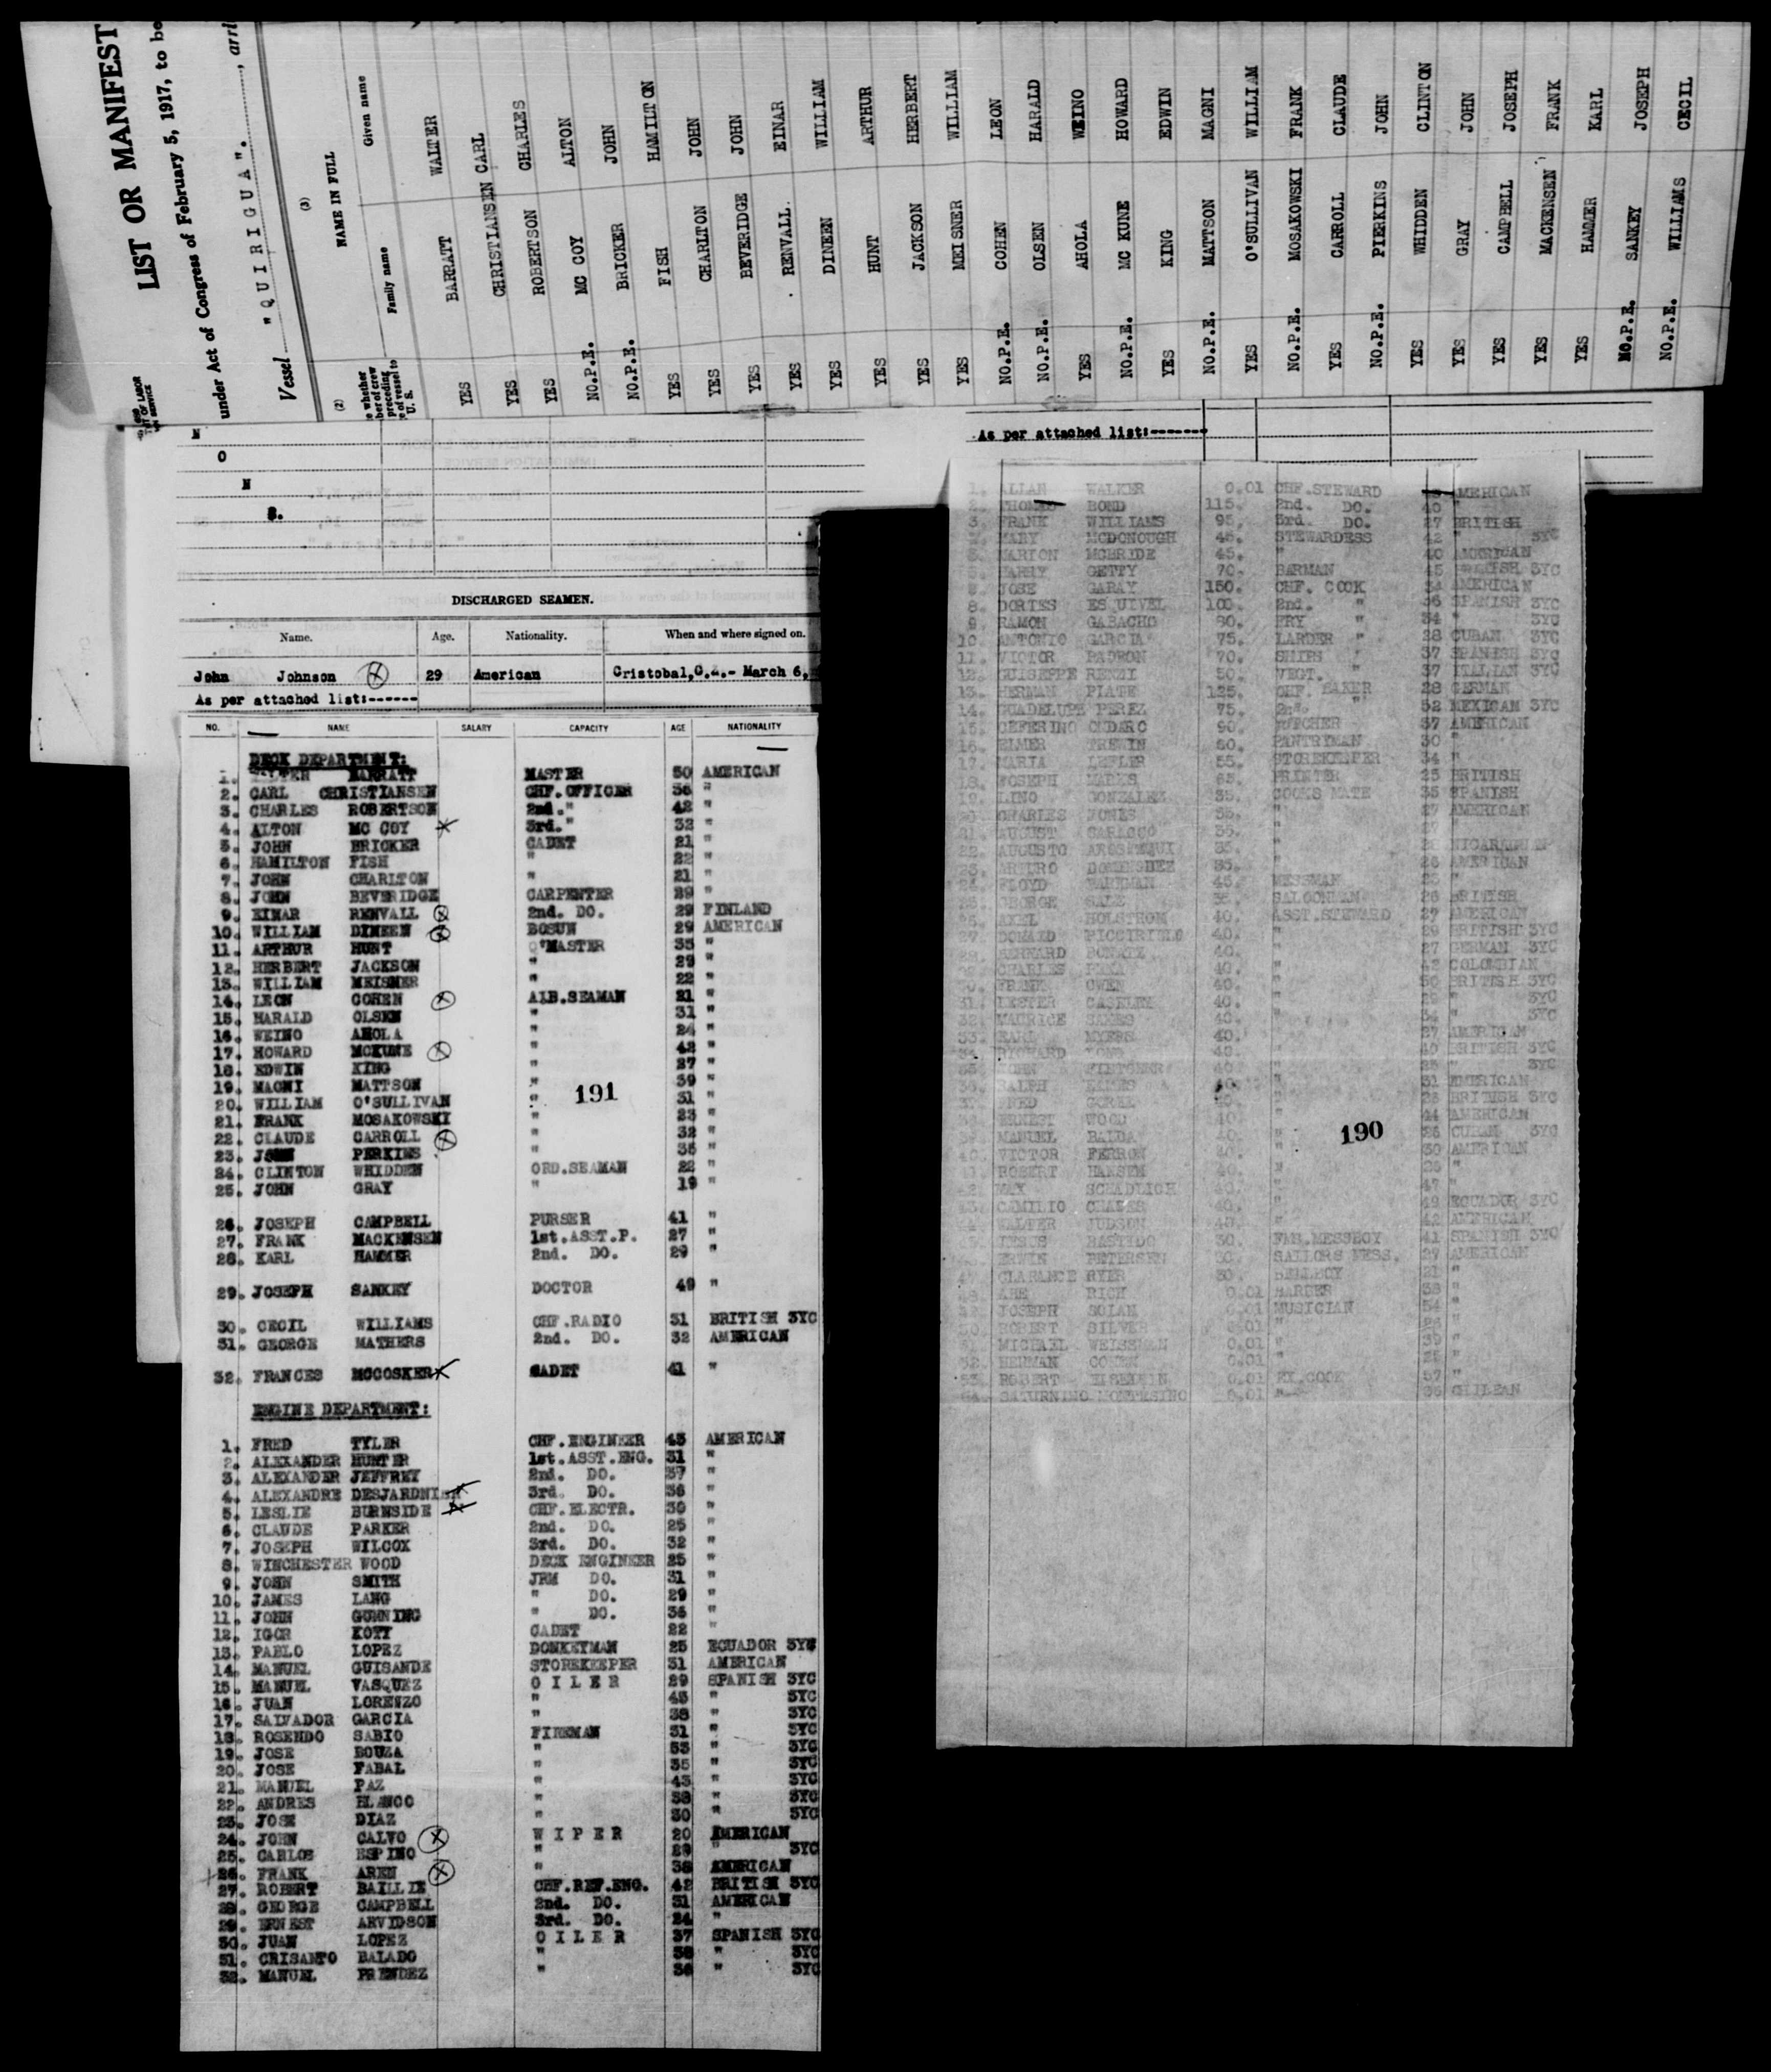 LIST OR MANIFEST
under Act of Congress of February 5, 1917, to be
Vessel "QUIRIGUA". , arri
(2) (3)
NAME IN FULL
Family name Given name
whether
ber of crew
preceding
e of vessel to
U. S.
YES BARRATT WALTER
YES CHRISTIANSEN CARL
YES ROBERTSON CHARLES
NO.P.E. MC COY ALTON
NO.P.E. BRICKER JOHN
YES FISH HAMILTON
YES CHARLTON JOHN
YES BEVERIDGE JOHN
YES RENVALL EINAR
YES DINEEN WILLIAM
YES HUNT ARTHUR
YES JACKSON HERBERT
YES MEISNER WILLIAM
NO.P.E. COHEN LEON
NO.P.E. OLSEN HARALD
YES AHOLA WEINO
NO.P.E. MC KUNE HOWARD
YES KING EDWIN
NO.P.E. MATTSON MAGNI
YES O'SULLIVAN WILLIAM
NO.P.E. MOSAKOWSKI FRANK
YES CARROLL CLAUDE
NO.P.E. PIERKINS JOHN
YES WHIDDEN CLINTON
YES GRAY JOHN
YES CAMPBELL JOSEPH
YES MACKENSEN FRANK
YES HAMMER KARL
NO.P.E. SANKEY JOSEPH
NO.P.E. WILLIAMS CECIL
N
O
N
E.
DISCHARGED SEAMEN.
Name. Age. Nationality. When and where signed on.
John Johnson 29 American Cristobal,C.Z.- March 6,
As per attached list:------
NO. NAME SALARY CAPACITY AGE NATIONALITY
DECK DEPARTMENT:
1. WALTER BARRATT MASTER 50 AMERICAN
2. CARL CHRISTIANSEN CHF.OFFICER 36 "
3. CHARLES ROBERTSON 2nd." 42 "
4. ALTON MC COY 3rd." 32 "
5. JOHN BRICKER CADET 21 "
6. HAMILTON FISH " 22 "
7. JOHN CHARLTON " 21 "
8. JOHN BEVERIDGE CARPENTER 29 "
9. EINAR RENVALL 2nd. DO. 29 FINLAND
10. WILLIAM DINEEN BOSUN 29 AMERICAN
11. ARTHUR HUNT Q'MASTER 35 "
12. HERBERT JACKSON " 29 "
13. WILLIAM MEISNER " 22 "
14. LEON COHEN A.B.SEAMAN 21 "
15. HARALD OLSEN " 31 "
16. WEINO AHOLA " 24 "
17. HOWARD MCKUNE " 42 "
18. EDWIN KING " 27 "
19. MAGNI MATTSON " 39 "
20. WILLIAM O'SULLIVAN " 31 "
21. FRANK MOSAKOWSKI " 23 "
22. CLAUDE CARROLL " 32 "
23. JOHN PERKINS " 35 "
24. CLINTON WHIDDEN ORD.SEAMAN 22 "
25. JOHN GRAY " 19 "
191
26. JOSEPH CAMPBELL PURSER 41 "
27. FRANK MACKENSEN 1st.ASST.P. 27 "
28. KARL HAMMER 2nd. DO. 29 "
29. JOSEPH SANKEY DOCTOR 49 "
30. CECIL WILLIAMS CHF.RADIO 31 BRITISH 3YC
31. GEORGE MATHERS 2nd. DO. 32 AMERICAN
32. FRANCES MCCOSKER CADET 41 "
ENGINE DEPARTMENT:
1. FRED TYLER CHF.ENGINEER 43 AMERICAN
2. ALEXANDER HUNTER 1st.ASST.ENG. 31 "
3. ALEXANDER JEFFREY 2nd. DO. 37 "
4. ALEXANDRE DESJARDNIER 3rd. DO. 36 "
5. LESLIE BURNSIDE CHF.ELECTR. 30 "
6. CLAUDE PARKER 2nd. DO. 25 "
7. JOSEPH WILCOX 3rd. DO. 32 "
8. WINCHESTER WOOD DECK ENGINEER 25 "
9. JOHN SMITH JRM DO. 31 "
10. JAMES LANG " DO. 29 "
11. JOHN GUNNING " DO. 36 "
12. IGOR KOTY CADET 22 "
13. PABLO LOPEZ DONKEYMAN 25 ECUADOR 3YC
14. MANUEL GUISANDE STOREKEEPER 31 AMERICAN
15. MANUEL VASQUEZ OILER 29 SPANISH 3YC
16. JUAN LORENZO " 43 " 3YC
17. SALVADOR GARCIA " 38 " 3YC
18. ROSENDO SABIO FIREMAN 31 " 3YC
19. JOSE BOUZA " 53 " 3YC
20. JOSE FABAL " 35 " 3YC
21. MANUEL PAZ " 43 " 3YC
22. ANDRES BLANCO " 38 " 3YC
23. JOSE DIAZ " 30 " 3YC
24. JOHN CALVO WIPER 20 AMERICAN
25. CARLOS ESPINO " 29 " 3YC
26. FRANK AREN " 38 AMERICAN
27. ROBERT BAILLIE CHF.REF.ENG. 42 BRITISH 3YC
28. GEORGE CAMPBELL 2nd. DO. 31 AMERICAN
29. ERNEST ARVIDSON 3rd. DO. 24 "
30. JUAN LOPEZ OILER 37 SPANISH 3YC
31. CRISANTO BALADO " 38 " 3YC
32. MANUEL PRENDEZ " 36 " 3YC
As per attached list:-------
1. ALLAN WALKER 0.01 CHF.STEWARD AMERICAN
2. THOMAS BOND 115. 2nd. DO. 40 "
3. FRANK WILLIAMS 95. 3rd. DO. 27 BRITISH
4. MARY MCDONOUGH 45. STEWARDESS 42 " 3YC
5. MARION MCBRIDE 45. " 40 AMERICAN
6. HARRY GETTY 70. BARMAN 45 BRITISH 3YC
7. JOSE GARAY 150. CHF. COOK 34 AMERICAN
8. DORTES ES UIVEL 100. 2nd. " 36 SPANISH 3YC
9. RAMON GABACHO 80. FRY " 34 " 3YC
10. ANTONIO GARCIA 75. LARDER " 28 CUBAN 3YC
11. VICTOR PADRON 70. SHIPS " 37 SPANISH 3YC
12. GUISEPPE RENZI 50. VEGT. " 37 ITALIAN 3YC
13. HERMAN PIATE 125. CHF. BAKER 28 GERMAN
14. GUADELUPE PEREZ 75. 2nd. " 52 MEXICAN 3YC
15. CEFERINO CUDERC 90. BUTCHER 37 AMERICAN
16. ELMER TREWIN 80. PANTRYMAN 30 "
17. MARIA LEFLER 55. STOREKEEPER 34 "
18. JOSEPH 65. PRINTER 25 BRITISH
19. LINO GONZALEZ 35. COOKS MATE 35 SPANISH
20. CHARLES JONES 35. " 27 AMERICAN
21. AUGUST 35. " 27 "
22. AUGUSTO 35. "
23. ARTURO 35. " 26 AMERICAN
24. FLOYD 45. MESSMAN "
25. GEORGE 35. SALOONMAN 26 BRITISH
26. AXEL HOLSTROM 40. ASST.STEWARD 27 AMERICAN
27. DONATO PICCIRILLO 40. " 29 BRITISH 3YC
28. BERNARD 40. " 27 GERMAN 3YC
29. CHARLES 40. " 42 COLOMBIAN
30. FRANK OWEN 40. " 50 BRITISH 3YC
31. LESTER CASELEY 40. " 29 " 3YC
32. MAURICE JAMES 40. " 34 " 3YC
33. EARL MYERS 40. " 27 AMERICAN
34. RICHARD 40. " 40 BRITISH 3YC
35. JOHN 40. " " 3YC
36. RALPH 40. " 31 AMERICAN
37. FRED 40. " BRITISH 3YC
38. ERNEST WOOD 40. " 44 AMERICAN
39. MANUEL BALDA 40. " 26 CUBAN 3YC
40. VICTOR FERRON 40. " 30 AMERICAN
41. ROBERT HANSEN 40. " "
42. MAX SCHADLICH 40. " 47 "
43. CAMILIO 40. " 49 ECUADOR 3YC
44. WALTER JUDSEN 40. " 42 AMERICAN
45. JESUS BASTIDO 30. MESSBOY 41 SPANISH 3YC
46. ERWIN PETERSEN 30. SAILORS MESS. 27 AMERICAN
47. CLARANCE RYER 30. BELLBOY 21 "
48. ABE RICH 0.01 BARBER 38 "
49. JOSEPH SOLAN 0.01 MUSICIAN 54 "
50. ROBERT SILVER 0.01 " "
51. MICHAEL WEISSMAN 0.01 " 39 "
52. HERMAN COHEN 0.01 " "
53. ROBERT 0.01 EX.COOK 57 "
54. SATURNINO MONTESINO 0.01 " CHILEAN
190